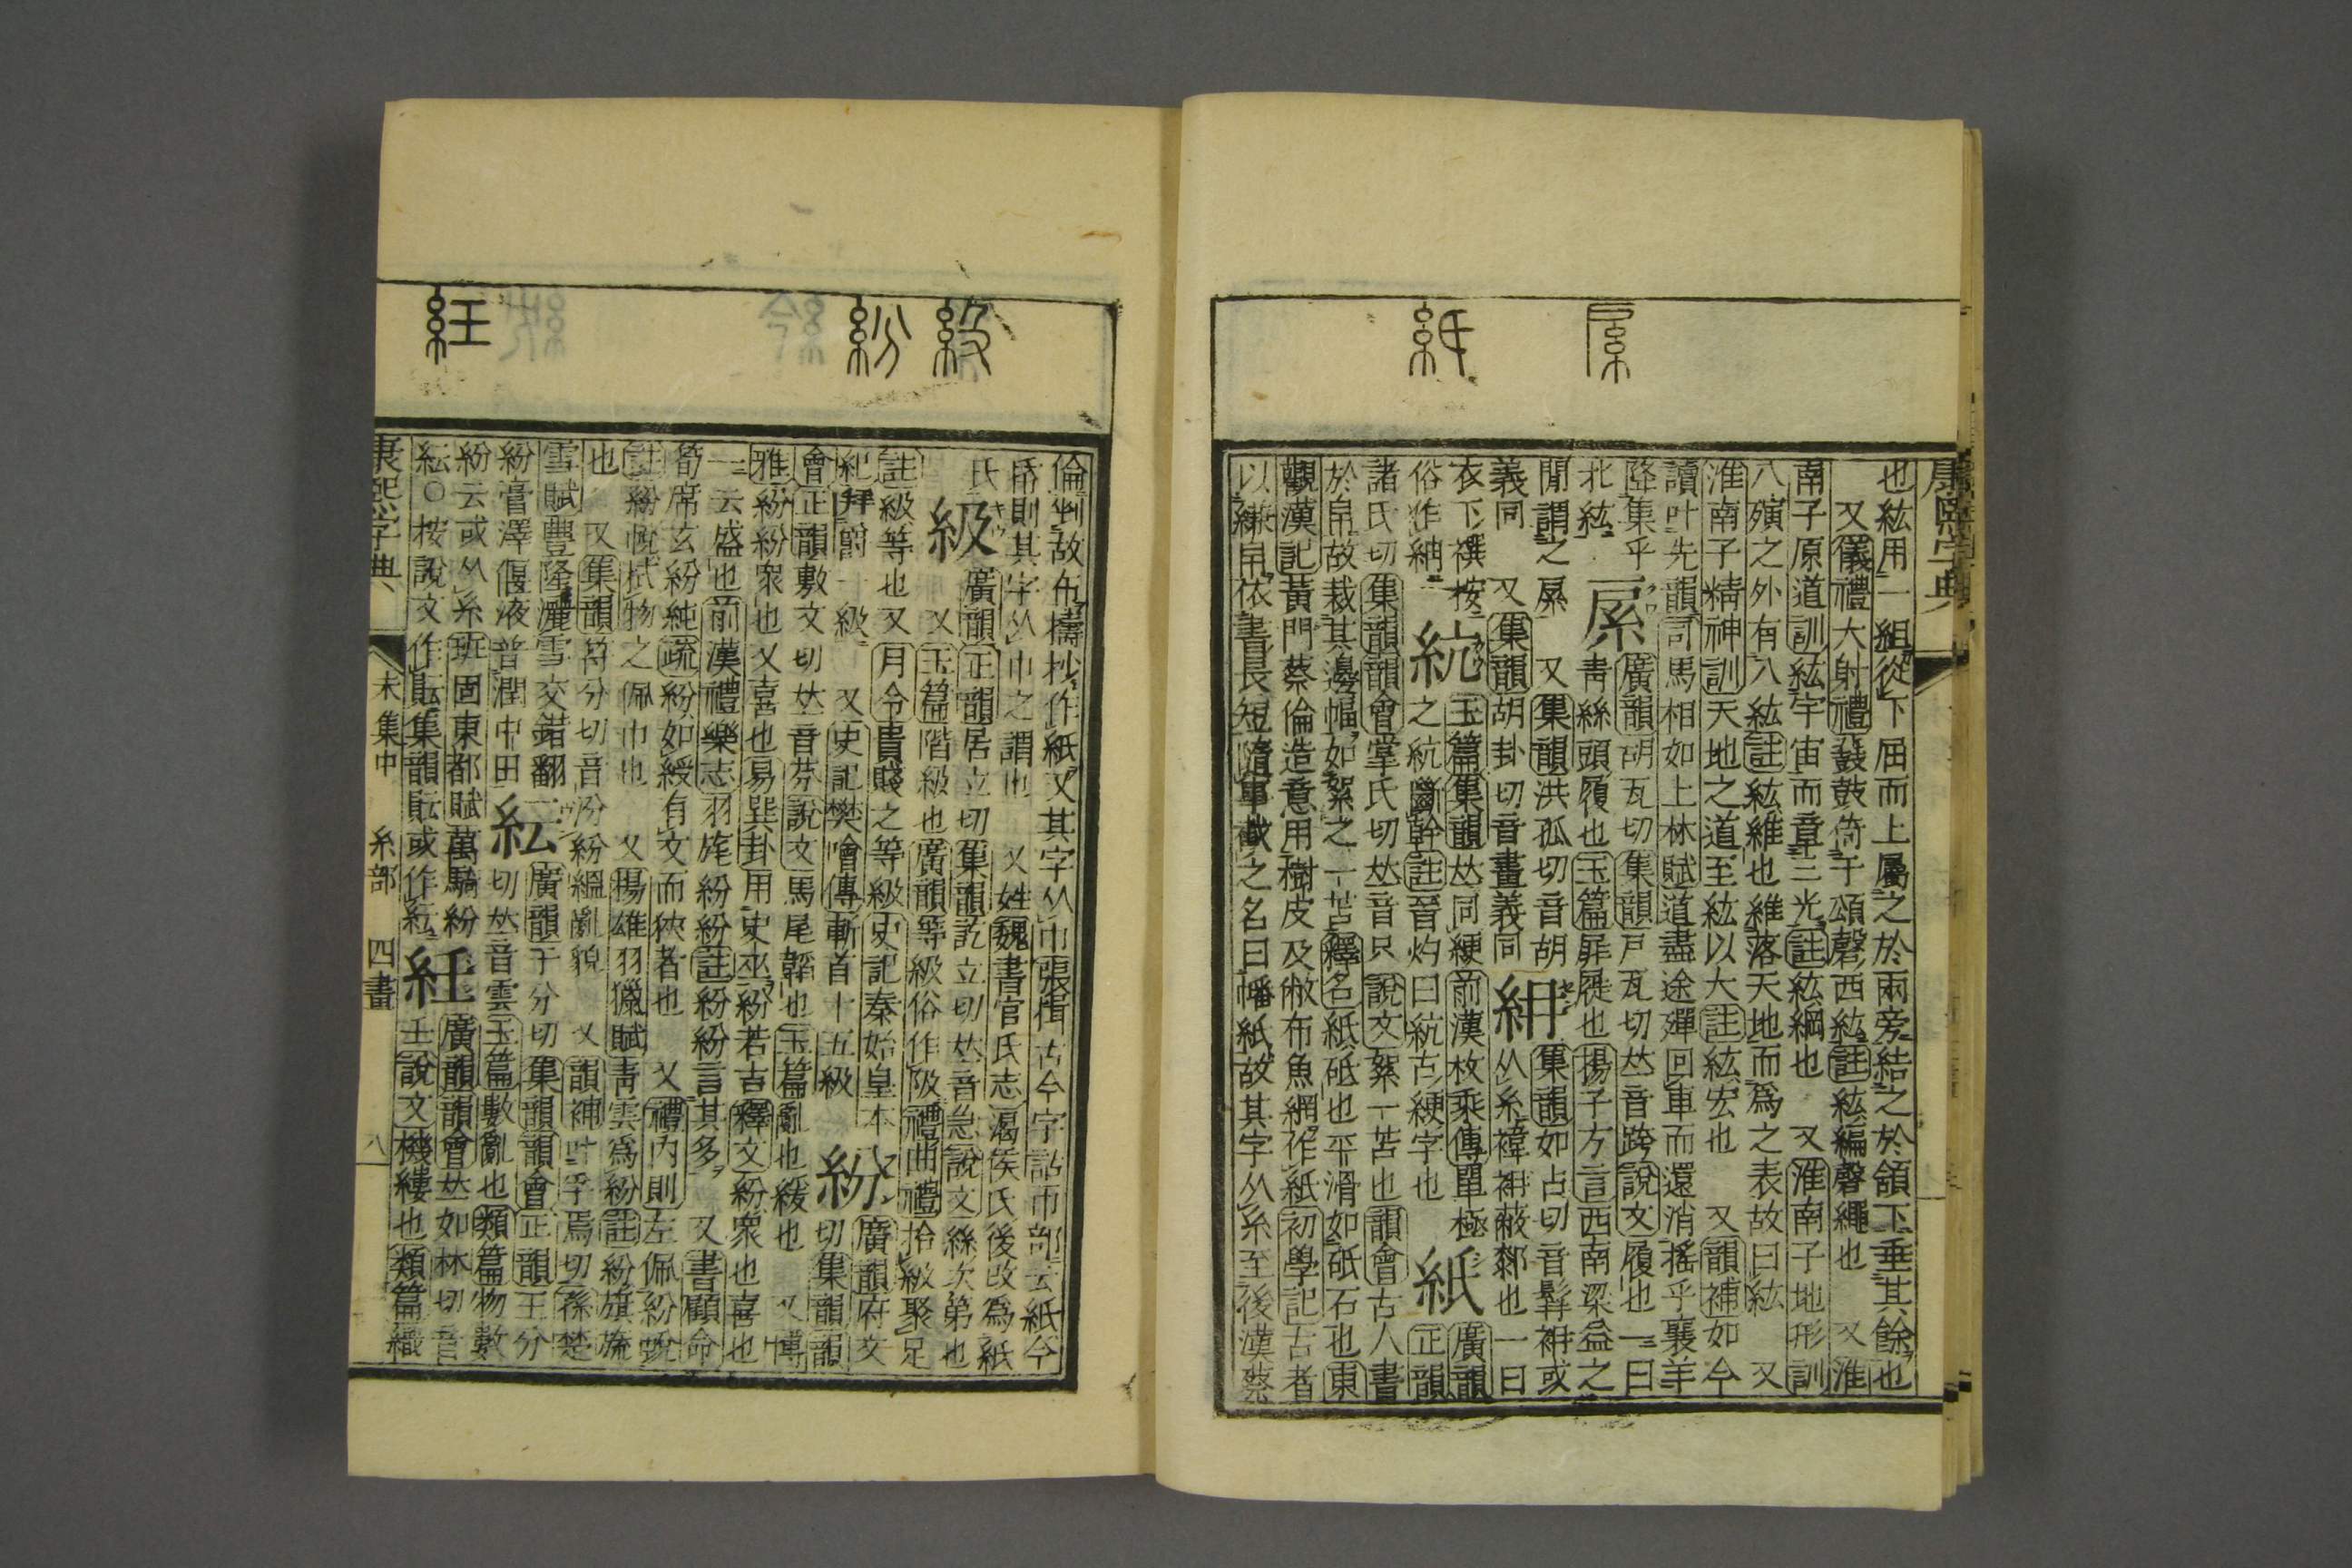 𦃃
紙
也紘用一組從下屈而上屬之於兩旁結之於頷下垂其餘也
又儀禮大射禮鼗鼓倚于頌磬西紘註紘編磬繩也 又淮
南子原道訓紘宇宙而章三光註紘綱也 又淮南子地形訓
八殥之外有八紘註紘維也維落天地而爲之表故曰紘 又
淮南子精神訓天地之道至紘以大註紘宏也 又韻補如今
讀叶先韻司馬相如上林賦道盡途殫回車而還消搖乎襄羊
降集乎
北紘
廣韻胡瓦切集韻戸瓦切𠀤音跨說文履也一曰
靑絲頭履也玉篇扉屣也揚子方言西南梁益之
閒謂之 又集韻洪孤切音胡
義同 又集韻胡卦切音畫義同
絤
集韻如占切音髯衻或
从糸褘衻蔽䣛也一曰
衣下襈按
俗作絤
紞
玉篇集韻𠀤同綆前漢枚乘傳單極
之紞斷幹註晉灼曰紞古綆字也
紙
廣韻
正韻
諸氏切集韻韻會掌氏切𠀤音只說文絮一苫也韻會古人書
於帛故裁其邊幅如絮之一苫釋名紙砥也平滑如砥石也東
觀漢記黃門蔡倫造意用樹皮及敝布魚網作紙初學記古者
以縑帛依書長短隨事截之名曰幡紙故其字从糸至後漢蔡
級
紛
紝
倫剉故布擣抄作紙又其字从巾張揖古今字詁巾部云紙今
帋則其字从巾之謂也 又姓魏書官氏志渴侯氏後改爲紙
氏
級
廣韻正韻居立切集韻訖立切𠀤音急說文絲次第也
又玉篇階級也廣韻等級俗作阪禮曲禮拾級聚足
註級等也又月令貴賤之等級史記秦始皇本
紀拜爵一級 又史記樊噲傳斬首十五級
紛
廣韻府文
切集韻韻
會正韻敷文切𠀤音芬說文馬尾韜也玉篇亂也緩也 又博
雅紛紛衆也又喜也易巽卦用史巫紛若吉釋文紛衆也喜也
一云盛也前漢禮樂志羽旄紛紛註紛紛言其多 又書顧命
筍席玄紛純疏紛如綬有文而狹者也 又禮內則左佩紛帨
註紛帨拭物之佩巾也 又揚雄羽獵賦靑雲爲紛註紛旗旒
也 又集韻符分切音汾紛縕亂貌 又韻補叶孚焉切孫楚
雪賦豐隆灑雪交錯翻
紛膏澤偃液普潤中田
紜
廣韻于分切集韻韻會正韻王分
切𠀤音雲玉篇數亂也類篇物數
紛云或从糸班固東都賦萬騎紛
紜○按說文作䰟集韻䰟或作紜
紝
廣韻韻會𠀤如林切音
壬說文機縷也類篇織
康熙字典
未集中
糸部
四畫
八
康熙字典